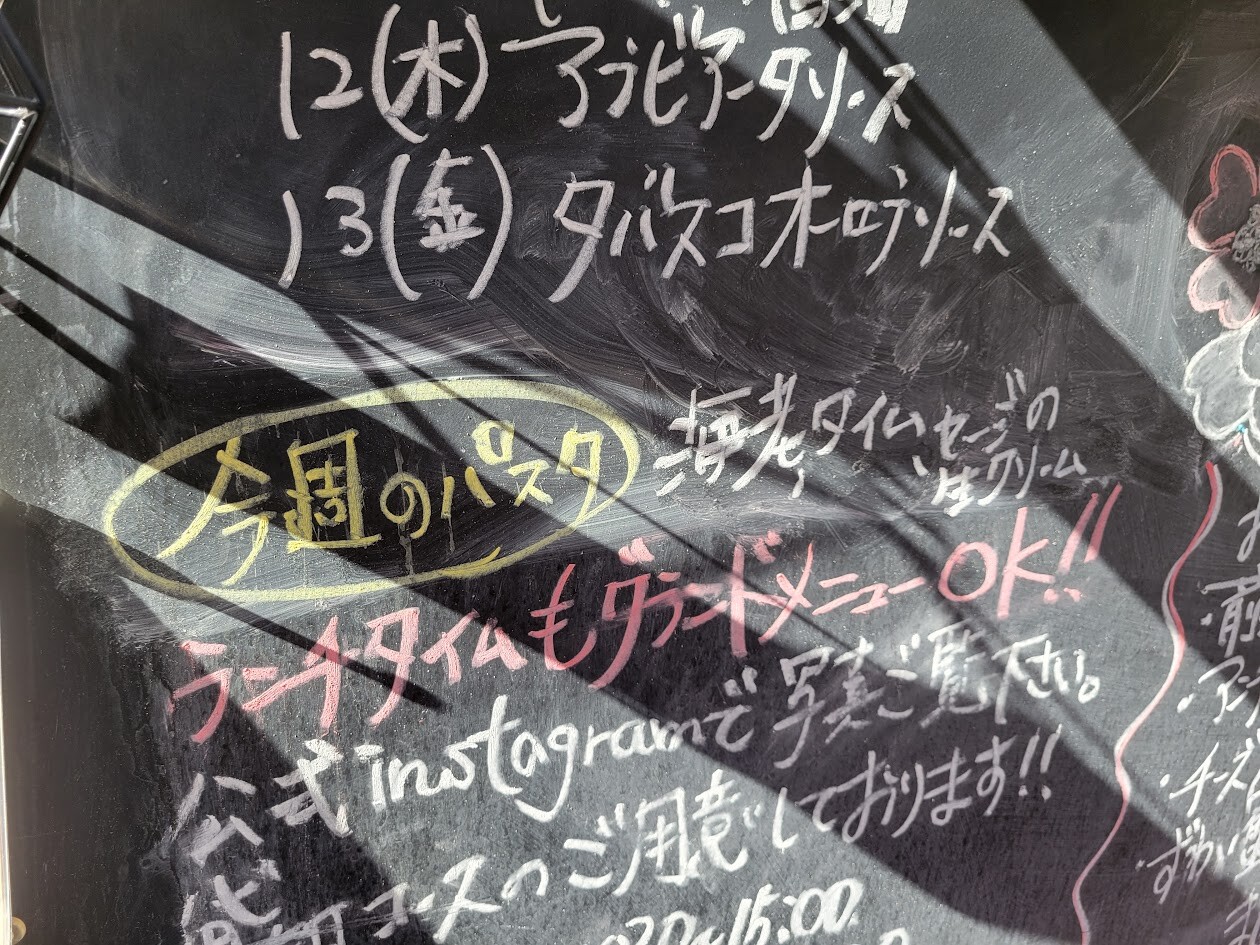 12(木) アラビアータソース
13(金) タバスコオーロラソース
今週のパスタ 海老、タイム、セージの
生クリーム
ランチタイムもグランドメニューOK!!
公式instagramで写真ご覧下さい。
コースのご用意しております!!
15:00
前
チーズ
ずわい